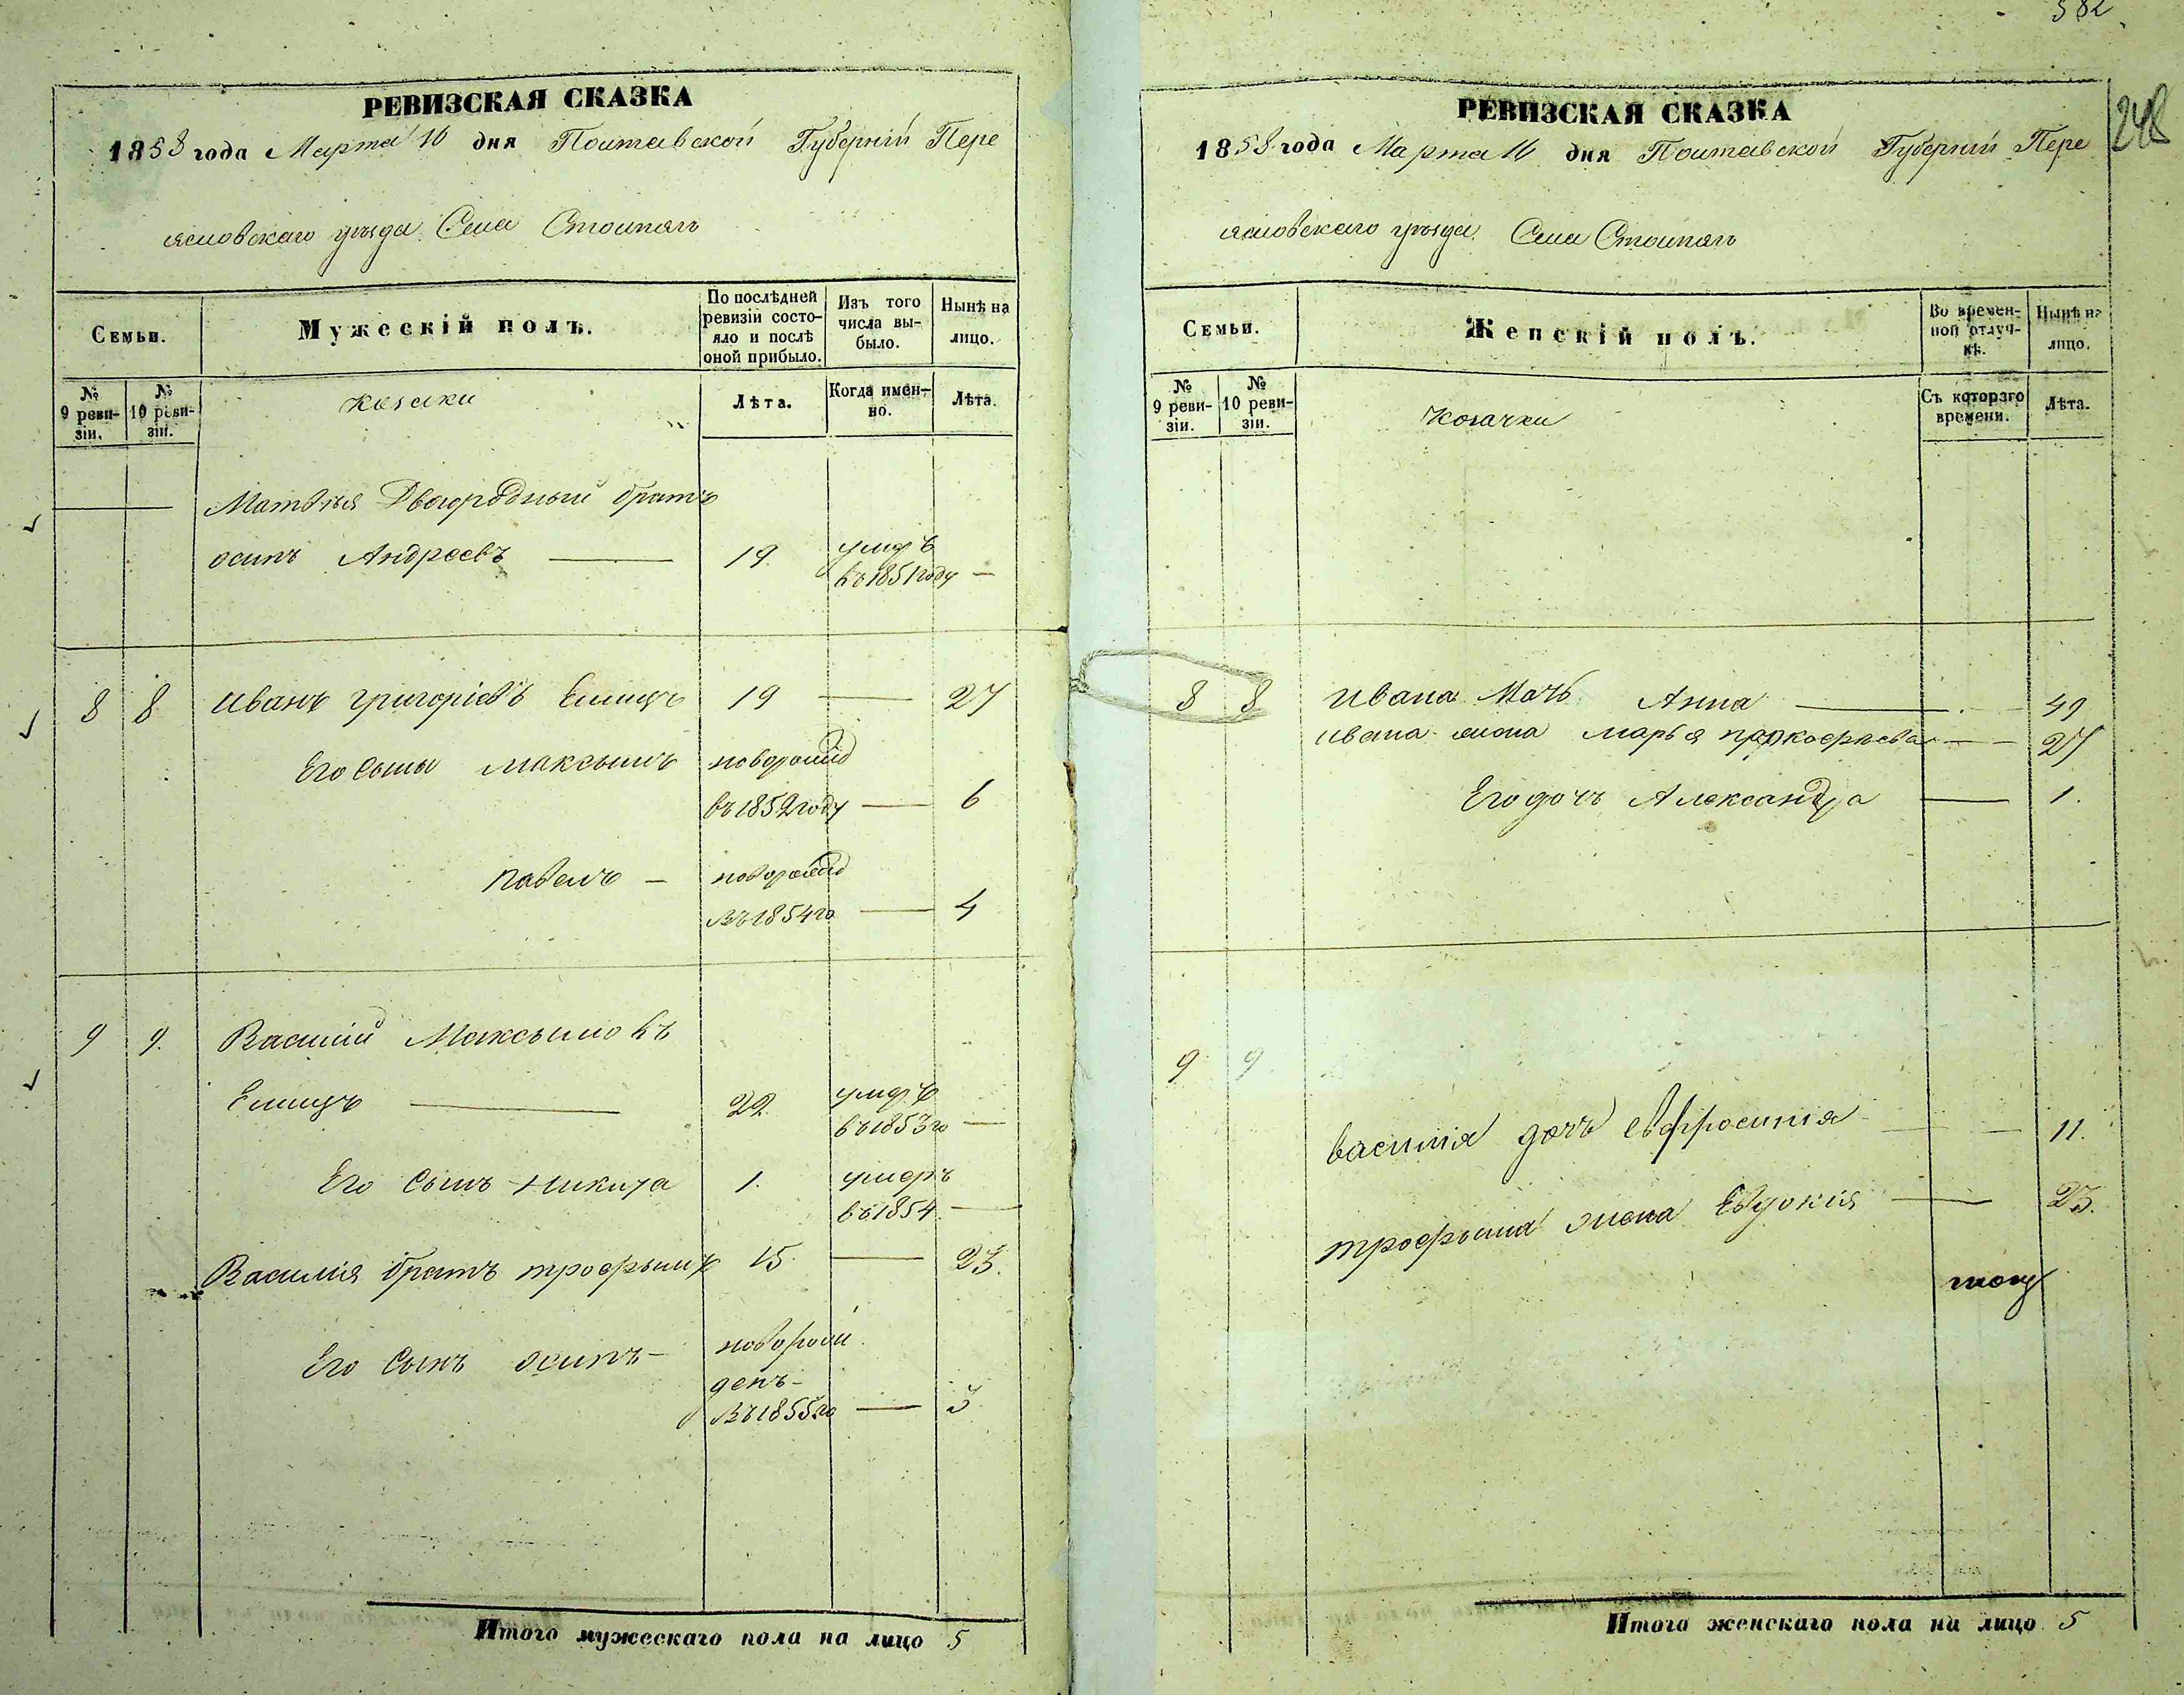 РЕВИЗСКАЯ СКАЗКА
1858 года Марта 16 дня Полтавской Губерніи Пере
яславскаго уѣзда Села Столпягъ
Семьи.
Мужескій полъ.
По послѣдней ревизіи состояло и послѣ оной прибыло.
Изъ того числа выбыло.
Нынѣ на лицо.
№ 9 ревизіи.
№ 10 ревизіи.
козаки
Лѣта.
Когда именно.
Лѣта.
Матвѣя Двоюродный братъ
осипъ Андреевъ 19 умеръ
въ 1851 году
8 8 иванъ григоріевъ Елицъ 19 27
Его сыны максымъ новорожд
въ 1852 году 6
павелъ новорожд
въ 1854 го 4
9 9. Василій Максымовъ
Елицъ 22 умеръ
въ 1853 го
Его сынъ никита 1. умеръ
въ 1854
Василія братъ трофымъ 15 23.
Его сынъ осипъ новорож
денъ
въ 1855 го 3
Итого мужескаго пола на лицо 5
582
248
РЕВИЗСКАЯ СКАЗКА
1858 года Марта 16 дня Полтавской Губерніи Пере
яславскаго уѣзда Села Столпягъ
Семьи.
Женскій полъ.
Во временной отлучкѣ.
Нынѣ на лицо.
№ 9 ревизіи.
№ 10 ревизіи.
козачки
Съ котораго времени.
Лѣта.
8 8 ивана Мать Анна 49
ивана жена марья 27
Его дочь Александра 1.
9 9
василія дочь евфросинія 11.
трофыма жена Евдокія 23.
Итого женскаго пола на лицо 5